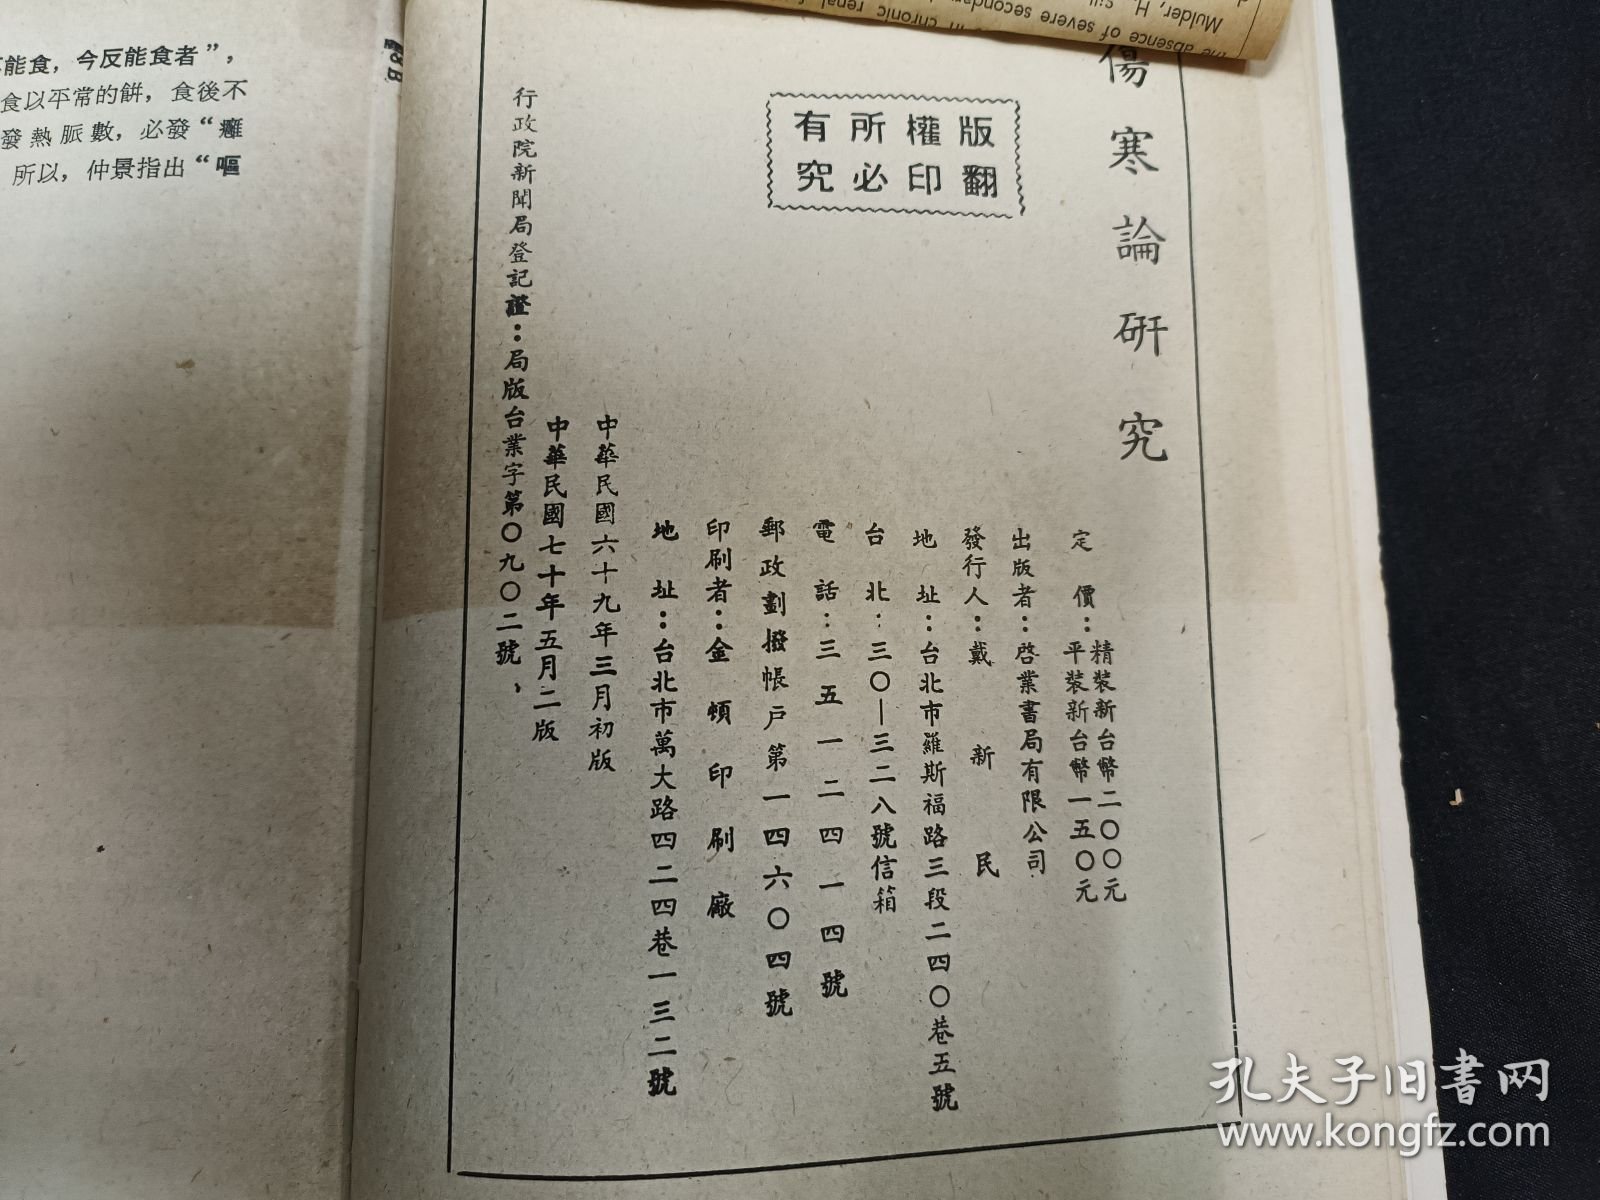 傷寒論研究
版權所有
翻印必究
定價：精裝新台幣二〇〇元
平裝新台幣一五〇元
出版者：啓業書局有限公司
發行人：戴新民
地址：台北市羅斯福路三段二四〇巷五號
台北：三〇—三二八號信箱
電話：三五一二四一四號
郵政劃撥帳戶第一四六〇四號
印刷者：金頓印刷廠
地址：台北市萬大路四二四巷一三二號
中華民國六十九年三月初版
中華民國七十年五月二版
行政院新聞局登記證：局版台業字第〇九〇二號、
能食，今反能食者”，
食以平常的餅，食後不
發熱脈數，必發“癰
所以，仲景指出“嘔
the absence of severe secondary
in chronic renal
Mulder, H.
孔夫子旧書网
www.kongfz.com